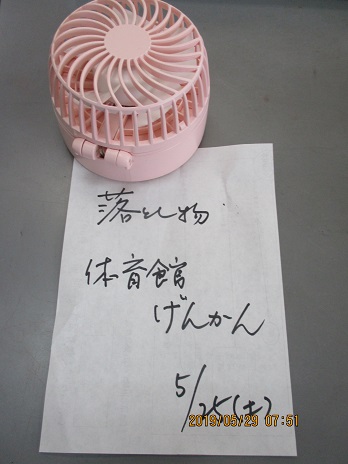 落とし物
体育館
げんかん
5/25(土)
2019/05/29 07:51